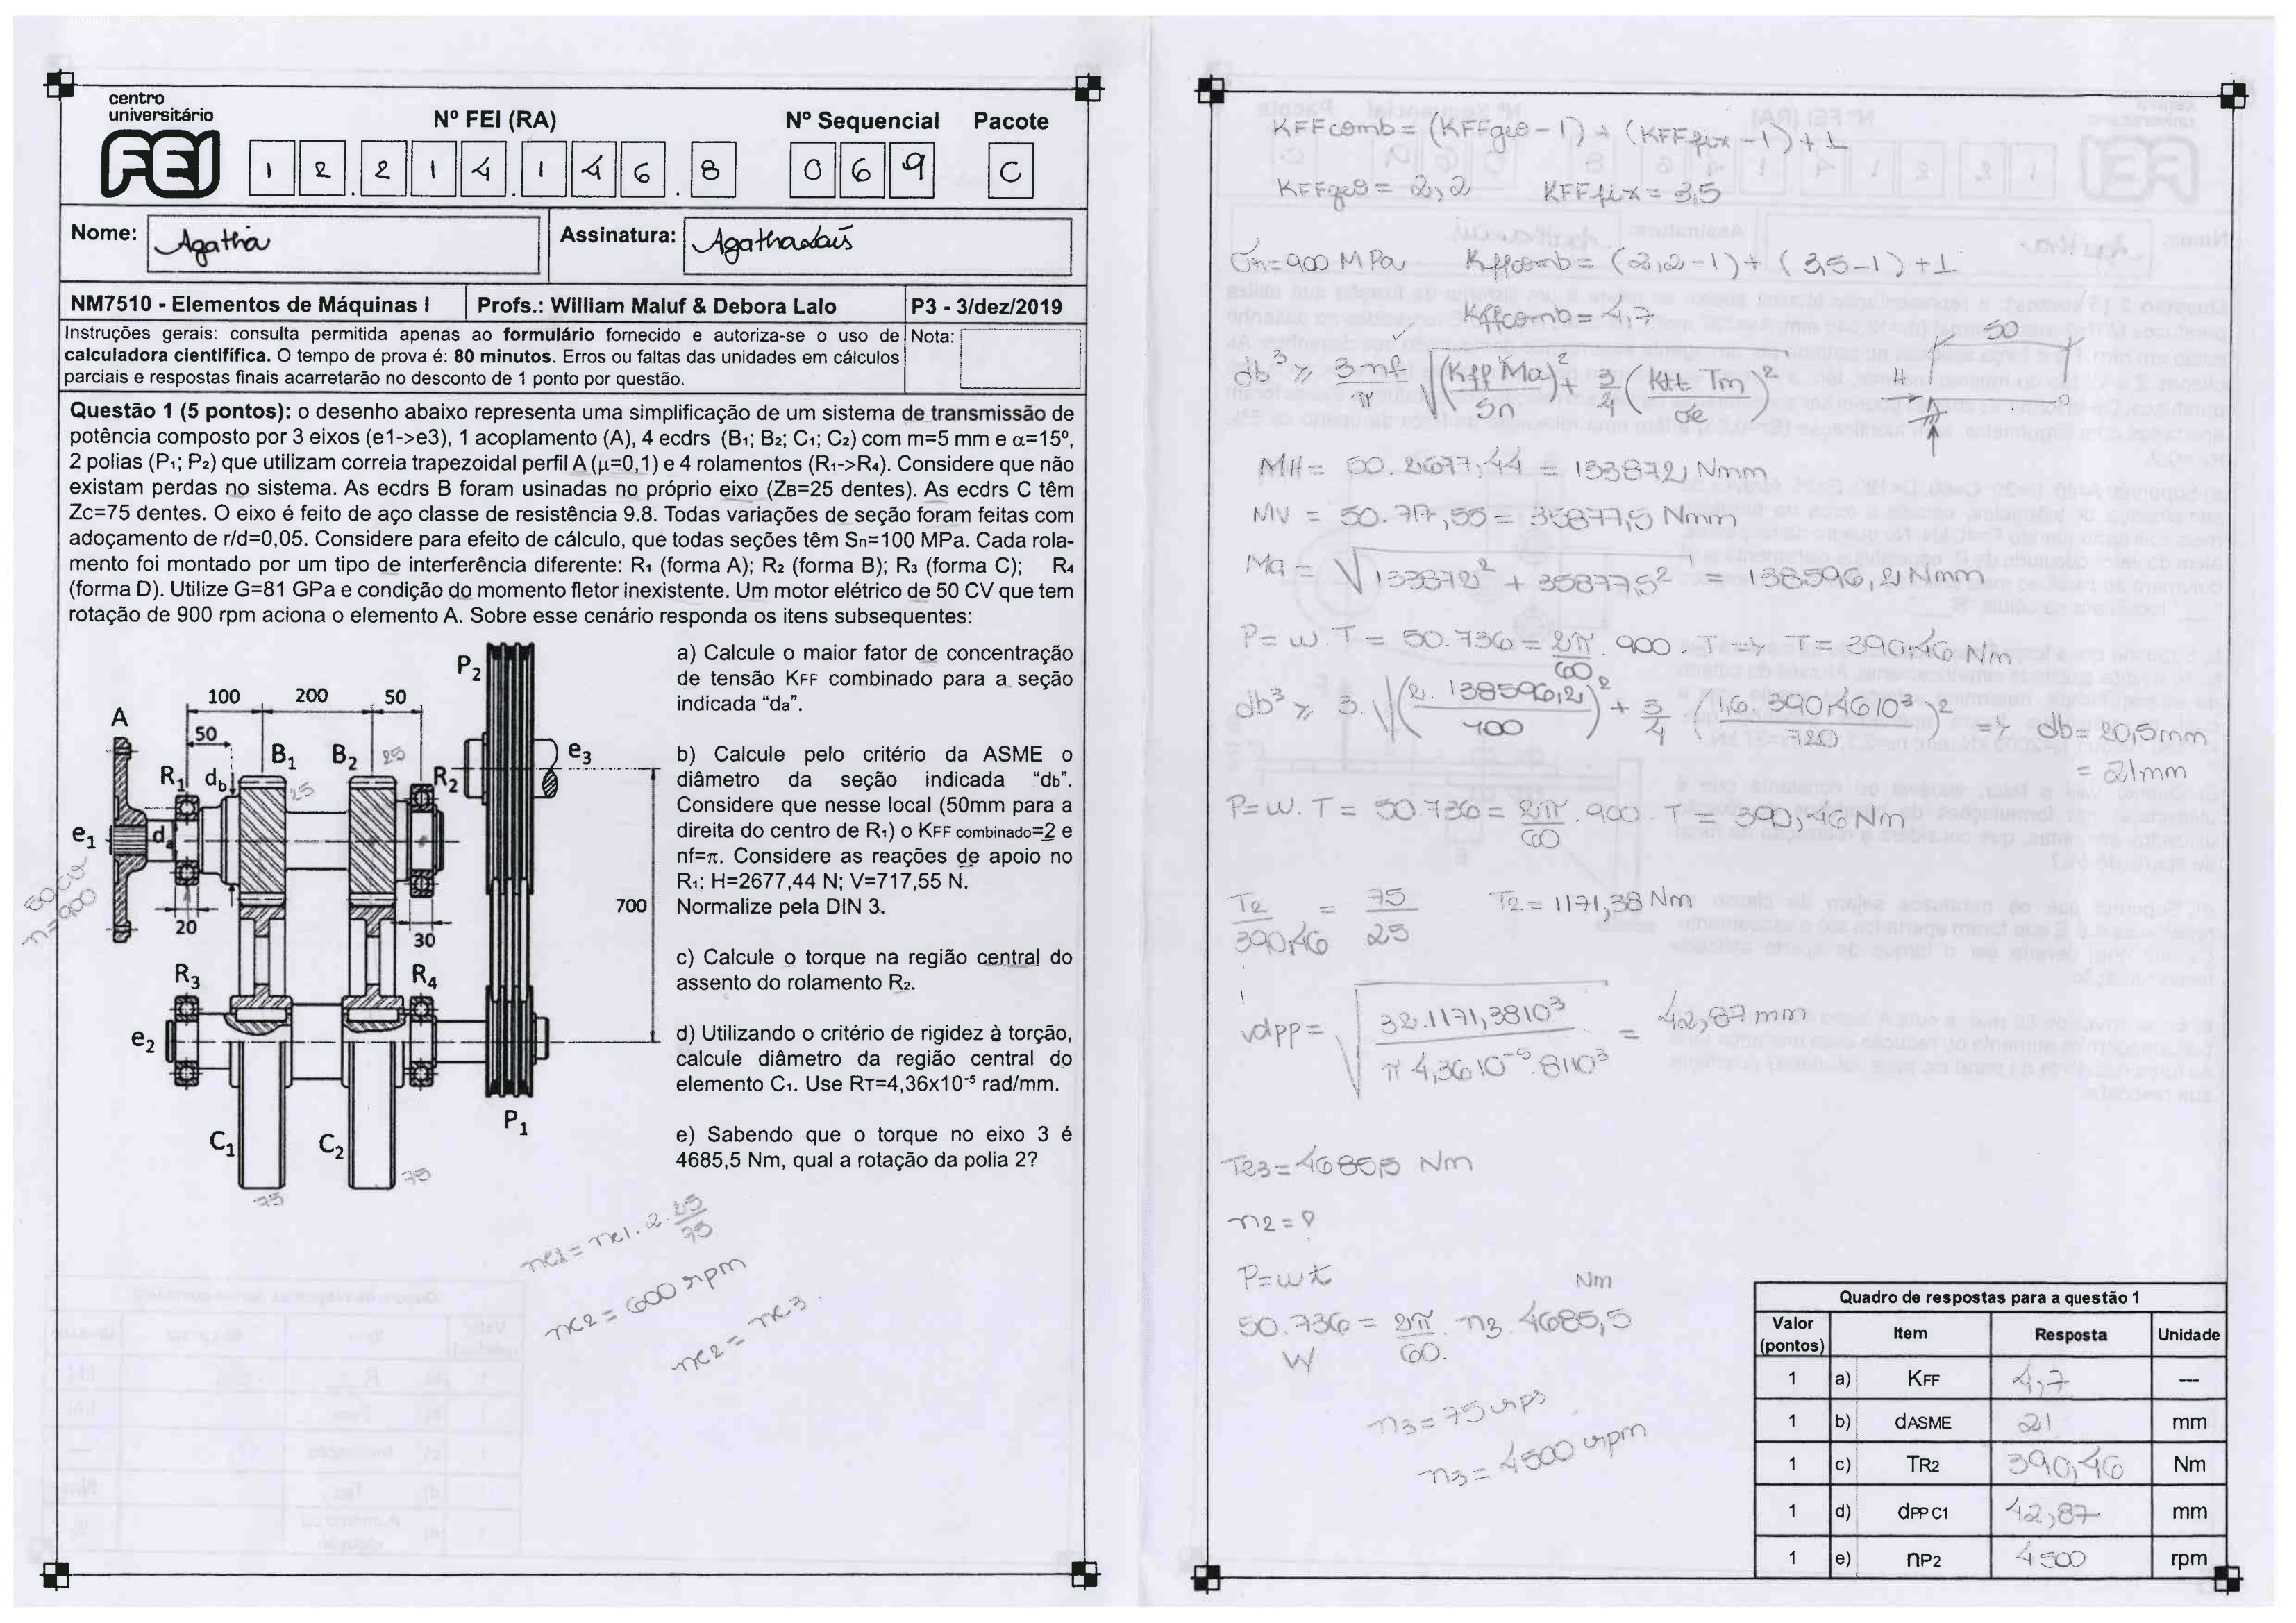 centro
universitário
FEI
Nº FEI (RA)
Nº Sequencial
Pacote
1 2 . 2 1 4 . 1 4 6 . 8
0 6 9
C
Nome: Agatha
Assinatura:
NM7510 - Elementos de Máquinas I
Profs.: William Maluf & Debora Lalo
P3 - 3/dez/2019
Instruções gerais: consulta permitida apenas ao formulário fornecido e autoriza-se o uso de
calculadora cientifífica. O tempo de prova é: 80 minutos. Erros ou faltas das unidades em cálculos
parciais e respostas finais acarretarão no desconto de 1 ponto por questão.
Nota:
Questão 1 (5 pontos): o desenho abaixo representa uma simplificação de um sistema de transmissão de
potência composto por 3 eixos (e1->e3), 1 acoplamento (A), 4 ecdrs (B1; B2; C1; C2) com m=5 mm e α=15º,
2 polias (P1; P2) que utilizam correia trapezoidal perfil A (μ=0,1) e 4 rolamentos (R1->R4). Considere que não
existam perdas no sistema. As ecdrs B foram usinadas no próprio eixo (ZB=25 dentes). As ecdrs C têm
Zc=75 dentes. O eixo é feito de aço classe de resistência 9.8. Todas variações de seção foram feitas com
adoçamento de r/d=0,05. Considere para efeito de cálculo, que todas seções têm Sn=100 MPa. Cada rola-
mento foi montado por um tipo de interferência diferente: R1 (forma A); R2 (forma B); R3 (forma C); R4
(forma D). Utilize G=81 GPa e condição do momento fletor inexistente. Um motor elétrico de 50 CV que tem
rotação de 900 rpm aciona o elemento A. Sobre esse cenário responda os itens subsequentes:
P2
100 200 50
A
50
B1 B2 25
e3
R1 db
25
R2
e1 da
50 cv
n=900
700
20
30
R3
R4
e2
P1
C1 C2
75
75
a) Calcule o maior fator de concentração
de tensão KFF combinado para a seção
indicada “da”.
b) Calcule pelo critério da ASME o
diâmetro da seção indicada “db”.
Considere que nesse local (50mm para a
direita do centro de R1) o KFF combinado=2 e
nf=π. Considere as reações de apoio no
R1; H=2677,44 N; V=717,55 N.
Normalize pela DIN 3.
c) Calcule o torque na região central do
assento do rolamento R2.
d) Utilizando o critério de rigidez à torção,
calcule diâmetro da região central do
elemento C1. Use RT=4,36x10-5 rad/mm.
e) Sabendo que o torque no eixo 3 é
4685,5 Nm, qual a rotação da polia 2?
nc2 = 600 rpm
nc2 = nc3.
KFFcomb = (KFFgeo - 1) + (KFFfix - 1) + 1
KFFgeo = 2,2 KFFfix = 3,5
Kffcomb = (2,2-1) + (3,5-1) + 1
Kffcomb = 4,7
50
H
db³ ≥ 3 nf/π √(Kff Ma/Sn)² + 3/4 (Kft Tm/σe)²
MH = 50. 2677,44 = 133872 Nmm
MV = 50. 717,55 = 35877,5 Nmm
Ma = √133872² + 35877,5² = 138596,2 Nmm
P = w. T = 50.736 = 2π/60 . 900 . T => T = 390,46 Nm
db³ ≥ 3. √(2. 138596,2/100)² + 3/4 (1,6. 390,46 10³/720)² => db = 20,5mm
= 21mm
P = w. T = 50.736 = 2π/60 . 900 . T = 390,46 Nm
T2/390,46 = 75/25 T2 = 1171,38 Nm
vdpp = √32.1171,38 10³/π 4,36 10-5.81 10³ = 42,87 mm
Te3 = 4685,5 Nm
n2 = ?
P = wt
Nm
50.736 = 2π/60. . n3. 4685,5
W
n3 = 75 rps
n3 = 4500 rpm
Quadro de respostas para a questão 1
Valor (pontos) Item Resposta Unidade
1 a) KFF 4,7 ---
1 b) dASME 21 mm
1 c) TR2 390,46 Nm
1 d) dPP C1 42,87 mm
1 e) nP2 4500 rpm